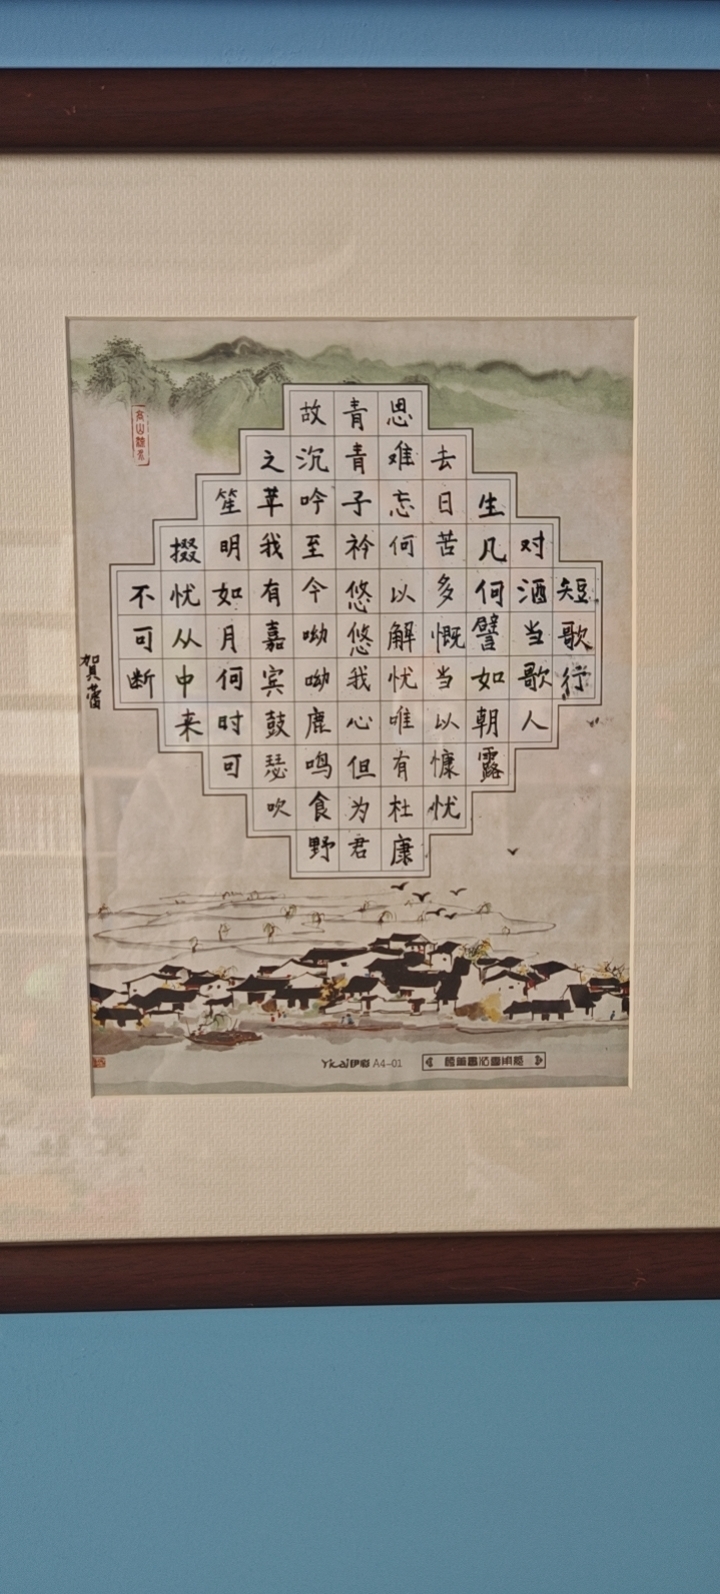 短歌行
对酒当歌人
生凡何譬如朝露
去日苦多慨当以慷忧
思难忘何以解忧唯有杜康
青青子衿悠悠我心但为君
故沉吟至今呦呦鹿鸣食野
之苹我有嘉宾鼓瑟吹
笙明如月何时可
掇忧从中来
不可断
Ykai伊彩 A4-01